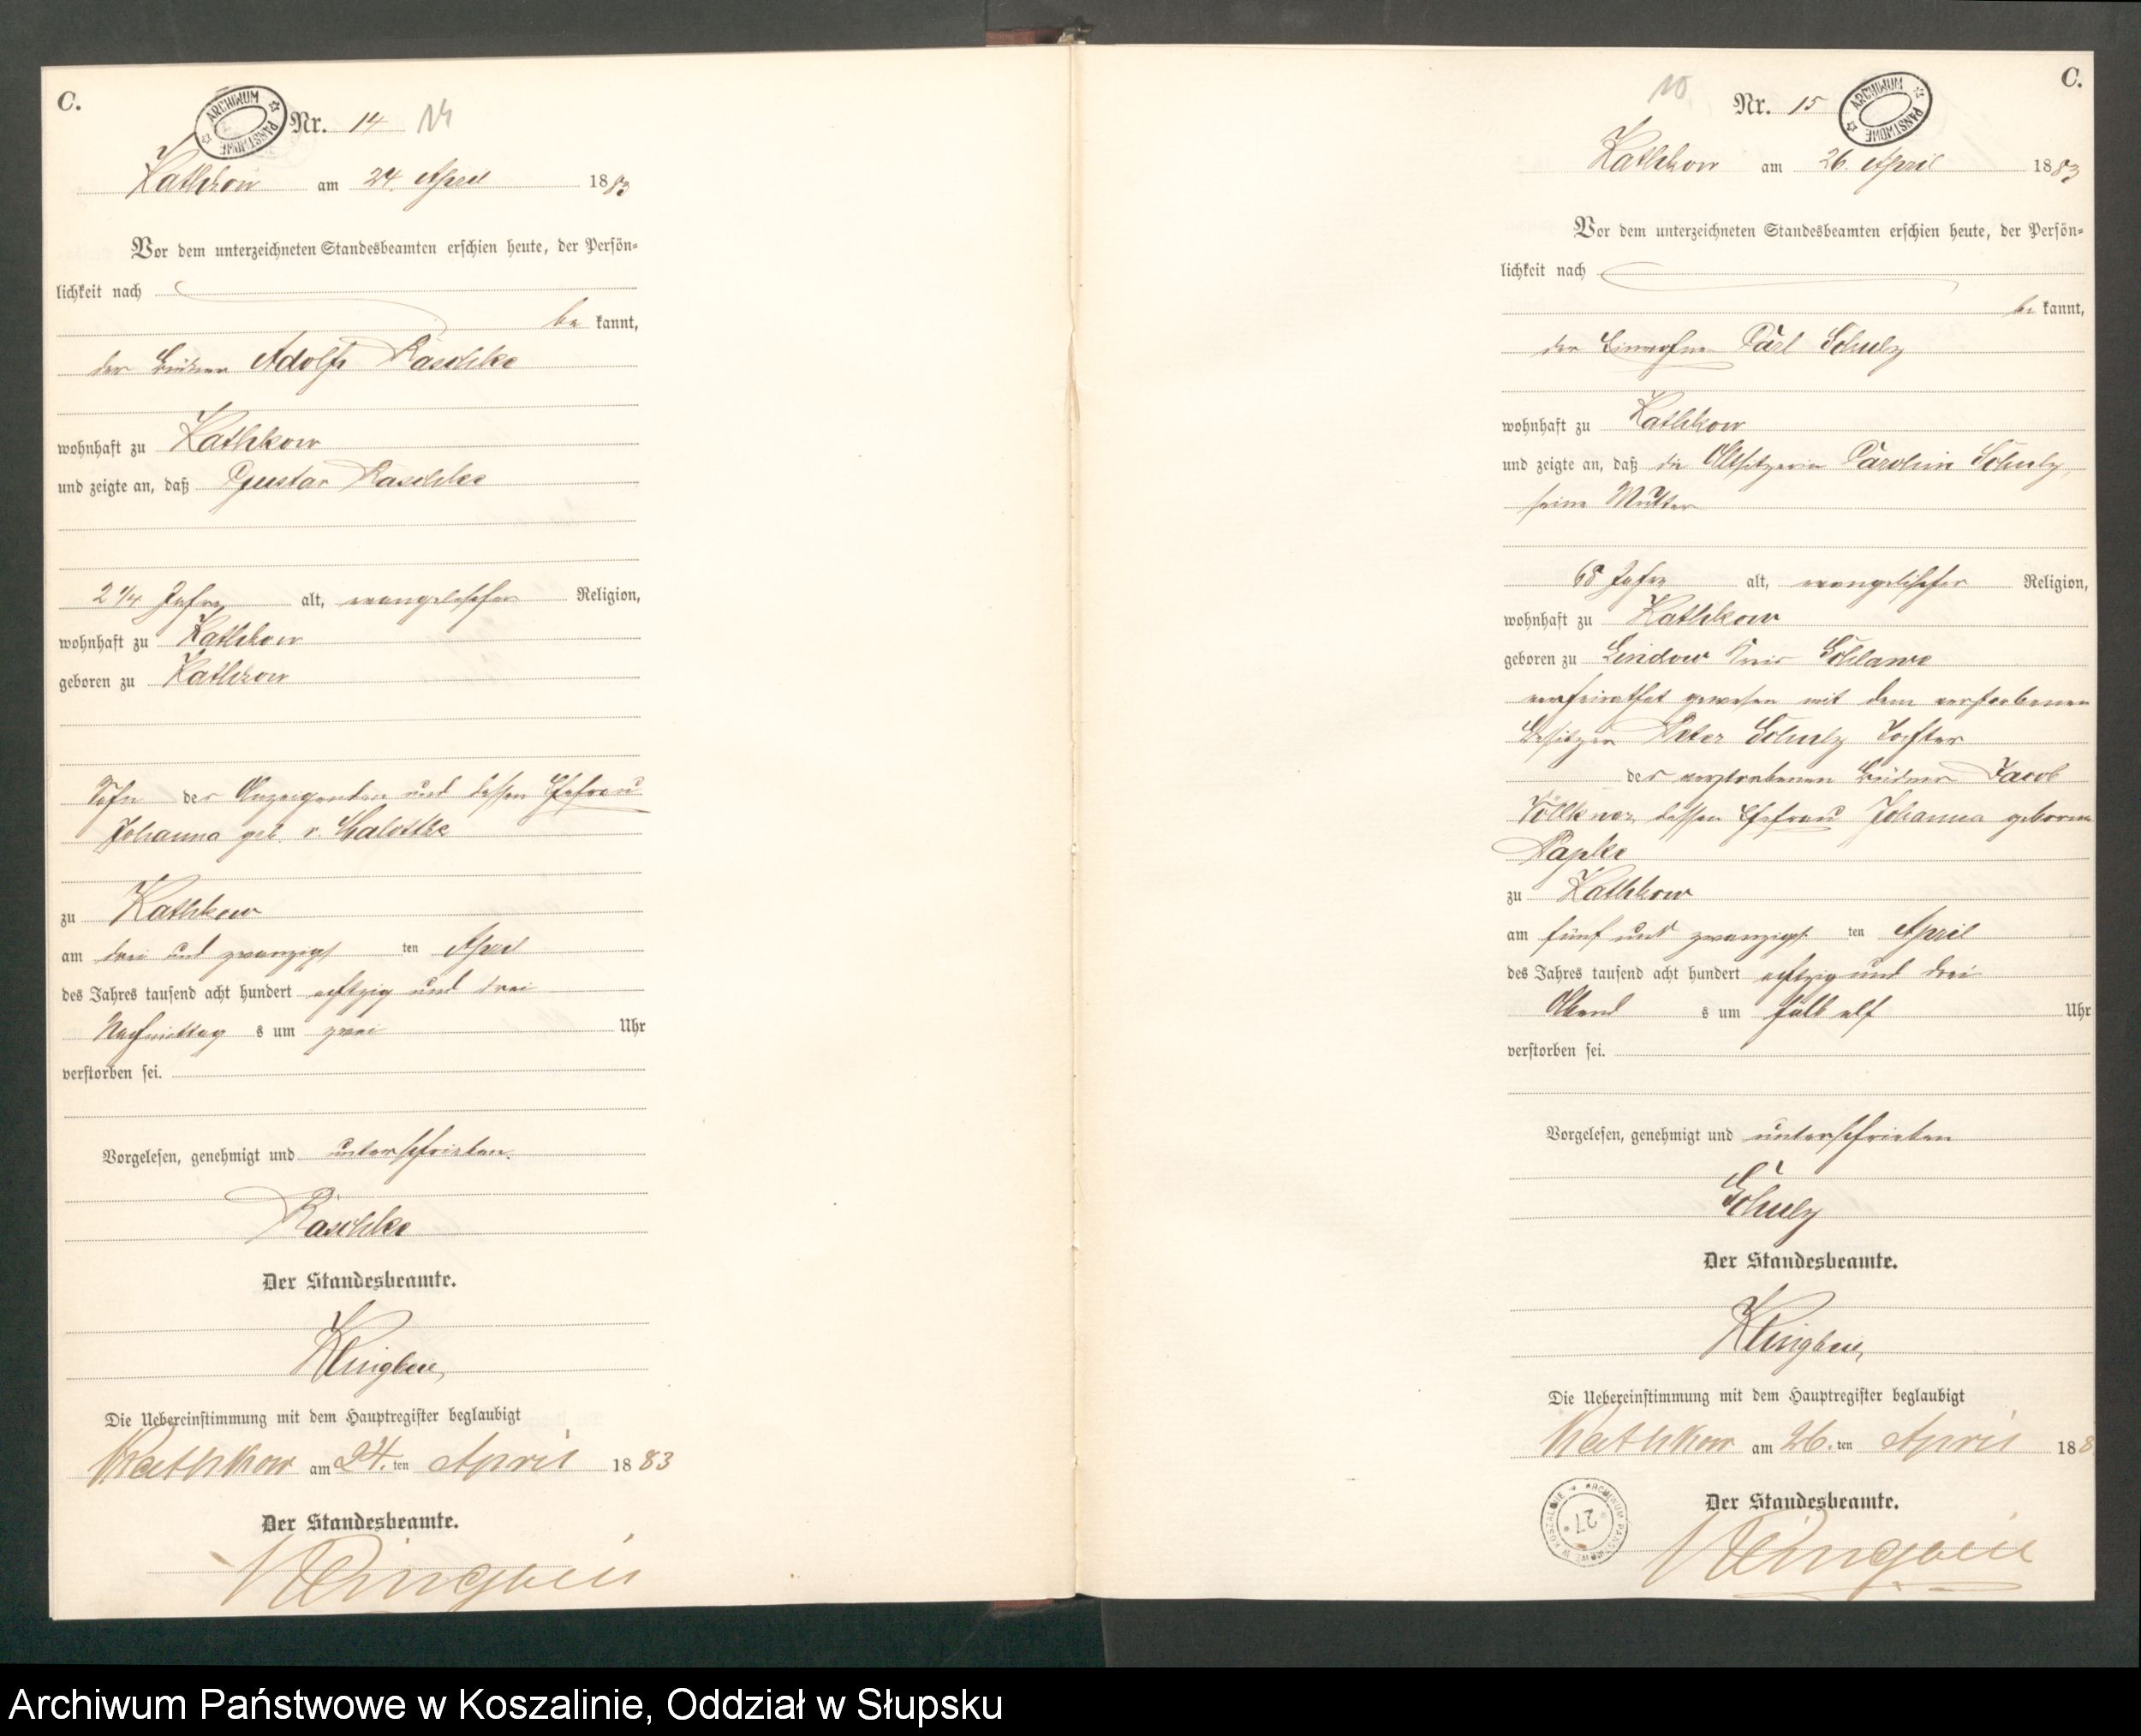 C.
ARCHIWUM PAŃSTWOWE
Nr. 14 14
Kathkow am 24. April 1883
Vor dem unterzeichneten Standesbeamten erschien heute, der Persön-
lichkeit nach
be kannt,
der Büdner Adolf Raschke
wohnhaft zu Kathkow
und zeigte an, daß Gustav Raschke
2 1/4 Jahre alt, evangelischer Religion,
wohnhaft zu Kathkow
geboren zu Kathkow
Sohn des Anzeigenden und dessen Ehefrau
Johanna geb. v. Malottke
zu Kathkow
am drei und zwanzigsten April
des Jahres tausend acht hundert achtzig und drei
Nachmittags um zwei Uhr
verstorben sei.
Vorgelesen, genehmigt und unterschrieben.
Raschke
Der Standesbeamte.
Klingbeil
Die Uebereinstimmung mit dem Hauptregister beglaubigt
Kathkow am 24.ten April 1883
Der Standesbeamte.
Klingbeil
C.
15
Nr. 15
ARCHIWUM PAŃSTWOWE
Kathkow am 26. April 1883
Vor dem unterzeichneten Standesbeamten erschien heute, der Persön-
lichkeit nach
be kannt,
der Einwohner Carl Schulz
wohnhaft zu Kathkow
und zeigte an, daß die Altsitzerin Carolin Schulz,
seine Mutter
68 Jahre alt, evangelischer Religion,
wohnhaft zu Kathkow
geboren zu Lindow Kreis Schlawe
verheirathet gewesen mit dem verstorbenen
Besitzer Peter Schulz Tochter
des verstorbenen Büdner Jacob
Völkner, dessen Ehefrau Johanna geborene
Papke
zu Kathkow
am fünf und zwanzigsten April
des Jahres tausend acht hundert achtzig und drei
Abends um halb elf Uhr
verstorben sei.
Vorgelesen, genehmigt und unterschrieben
Schulz
Der Standesbeamte.
Klingbeil
Die Uebereinstimmung mit dem Hauptregister beglaubigt
Kathkow am 26.ten April 188
Der Standesbeamte.
ARCHIWUM PAŃSTWOWE W KOSZALINIE
27
Klingbeil
Archiwum Państwowe w Koszalinie, Oddział w Słupsku